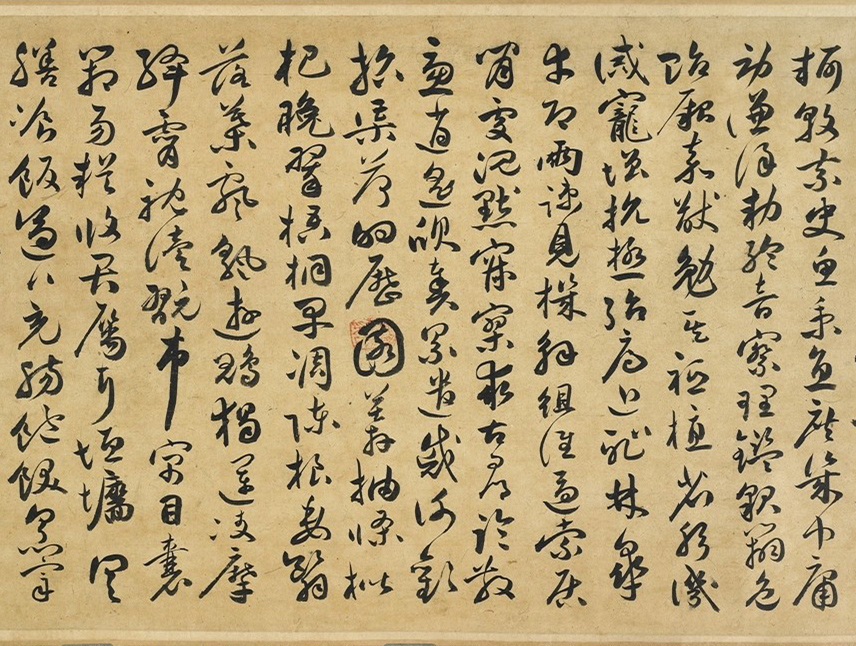 軻敦素史魚秉直庶幾中庸
勞謙謹勅聆音察理鑑貌辨色
貽厥嘉猷勉其祗植省躬譏
誡寵增抗極殆辱近恥林皋
幸即兩疏見機解組誰逼索居
閒處沉默寂寥求古尋論散
慮逍遙欣奏累遣慼謝歡
招渠荷的歷園莽抽條枇
杷晚翠梧桐早凋陳根委翳
落葉飄颻遊鵾獨運凌摩
絳霄耽讀翫市寓目囊
箱易輶攸畏屬耳垣墻具
膳飡飯適口充腸飽飫烹宰